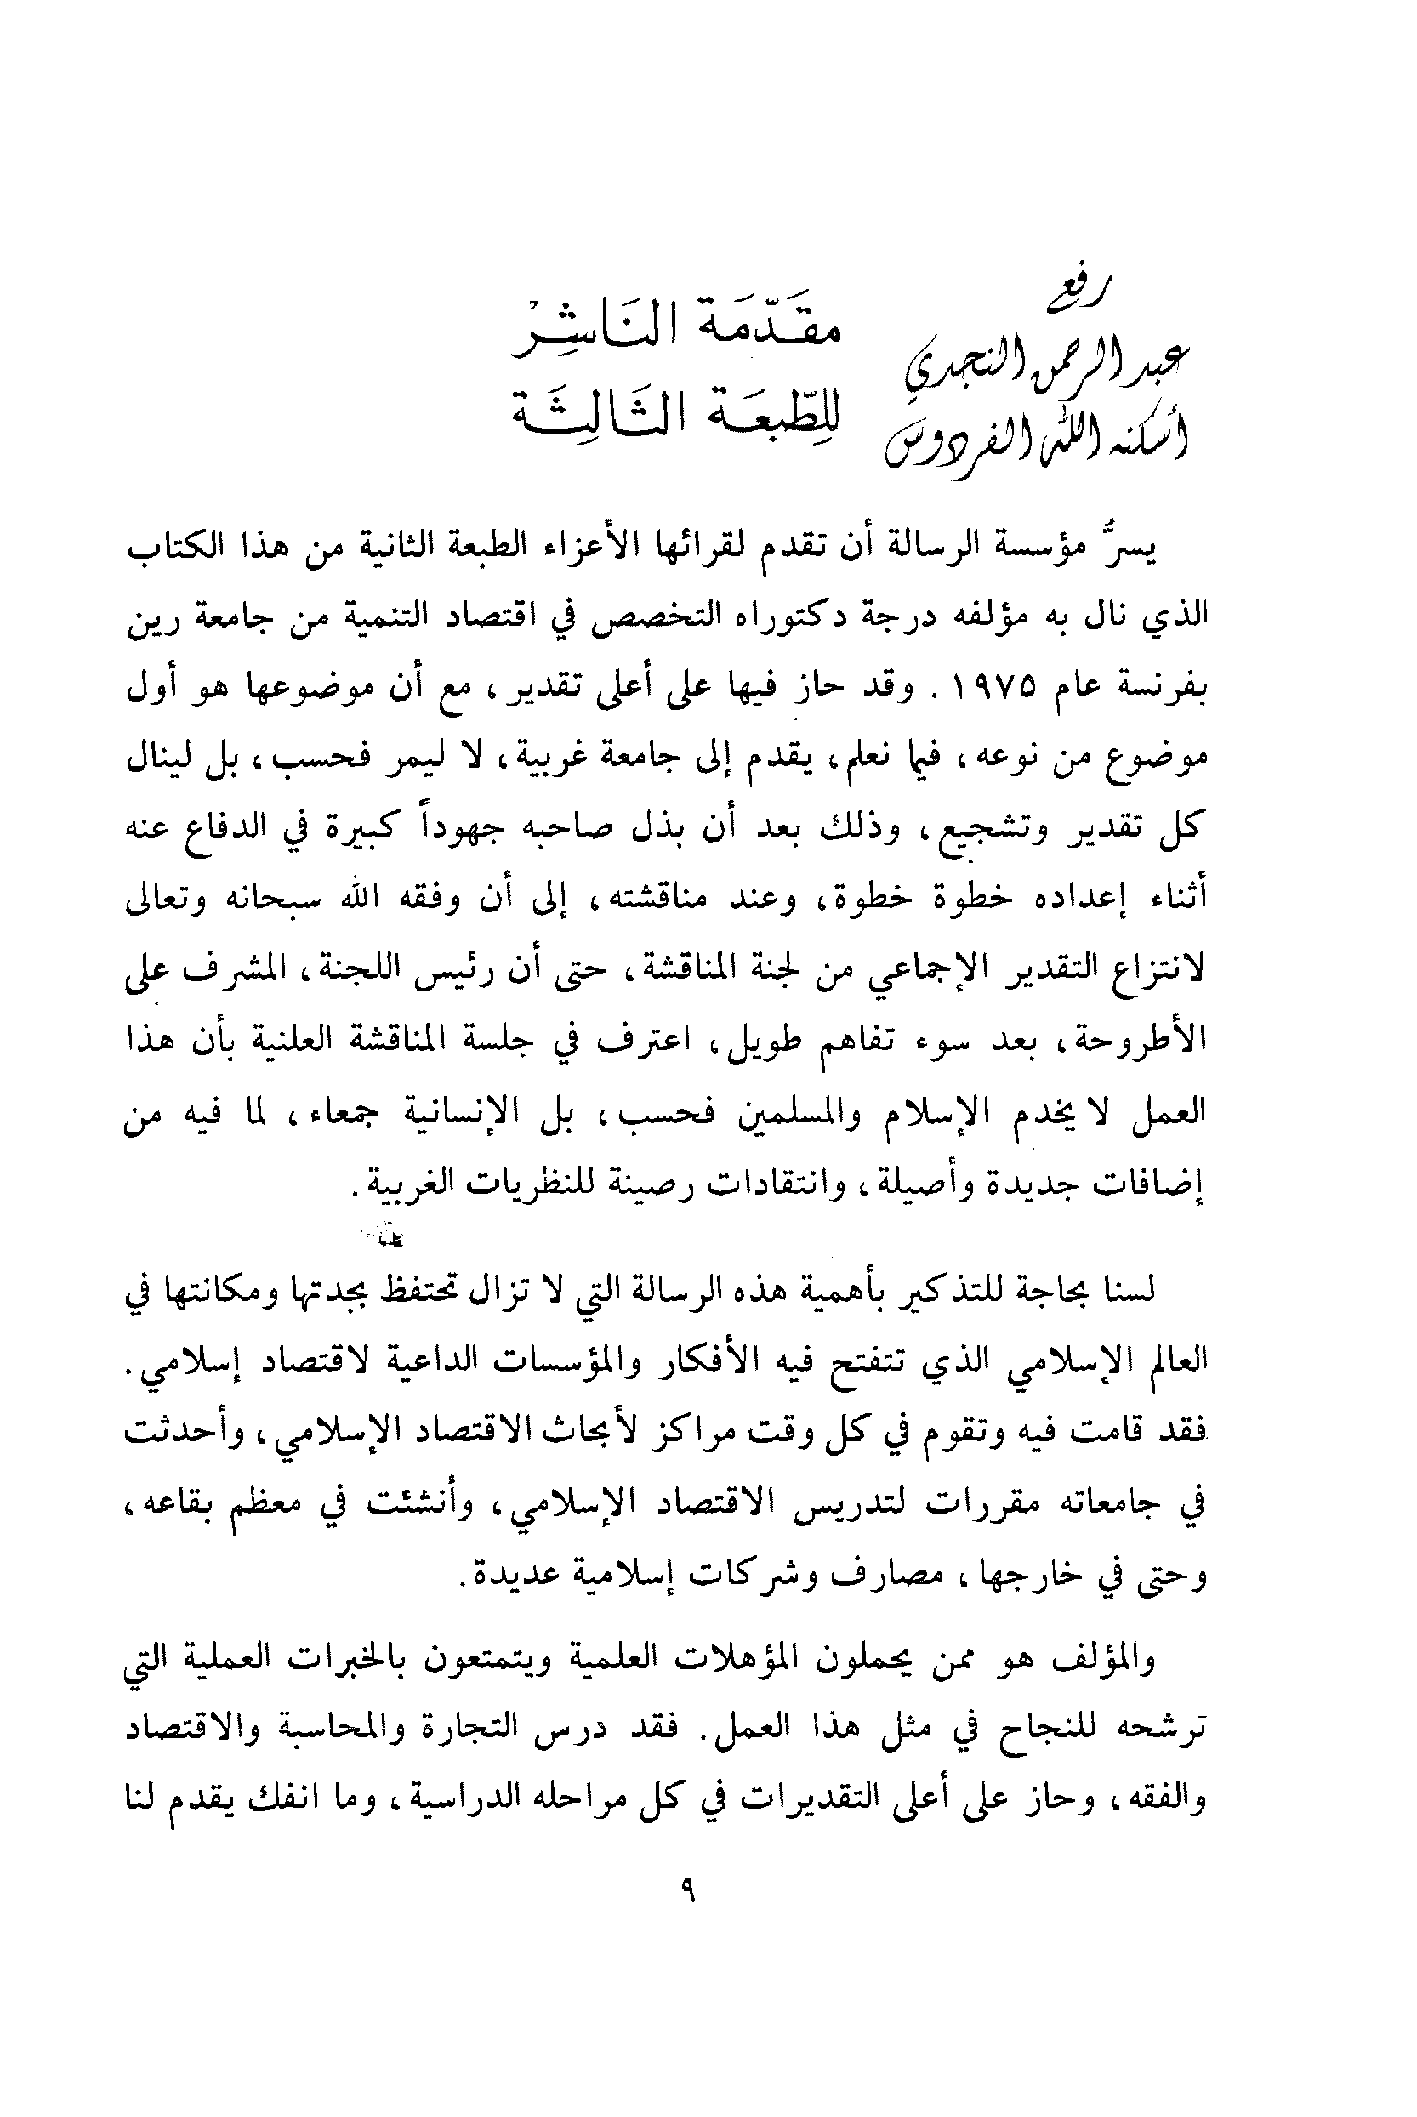 رفع
عبد الرحمن النجدي
أسكنه الله الفردوس
مقدّمة الناشر
للطّبعة الثالثة
يسرُّ مؤسسة الرسالة أن تقدم لقرائها الأعزاء الطبعة الثانية من هذا الكتاب
الذي نال به مؤلفه درجة دكتوراه التخصص في اقتصاد التنمية من جامعة رين
بفرنسة عام ١٩٧٥ . وقد حاز فيها على أعلى تقدير ، مع أن موضوعها هو أول
موضوع من نوعه ، فيما نعلم، يقدم إلى جامعة غربية، لا ليمر فحسب، بل لينال
كل تقدير وتشجيع، وذلك بعد أن بذل صاحبه جهوداً كبيرة في الدفاع عنه
أثناء إعداده خطوة خطوة، وعند مناقشته، إلى أن وفقه الله سبحانه وتعالى
لانتزاع التقدير الإجماعي من لجنة المناقشة، حتى أن رئيس اللجنة، المشرف على
الأطروحة، بعد سوء تفاهم طويل، اعترف في جلسة المناقشة العلنية بأن هذا
العمل لا يخدم الإسلام والمسلمين فحسب، بل الإنسانية جمعاء، لما فيه من
إضافات جديدة وأصيلة، وانتقادات رصينة للنظريات الغربية.
لسنا بحاجة للتذكير بأهمية هذه الرسالة التي لا تزال تحتفظ بجدتها ومكانتها في
العالم الإسلامي الذي تتفتح فيه الأفكار والمؤسسات الداعية لاقتصاد إسلامي.
فقد قامت فيه وتقوم في كل وقت مراكز لأبحاث الاقتصاد الإسلامي، وأحدثت
في جامعاته مقررات لتدريس الاقتصاد الإسلامي، وأنشئت في معظم بقاعه،
وحتى في خارجها، مصارف وشركات إسلامية عديدة.
والمؤلف هو ممن يحملون المؤهلات العلمية ويتمتعون بالخبرات العملية التي
ترشحه للنجاح في مثل هذا العمل. فقد درس التجارة والمحاسبة والاقتصاد
والفقه، وحاز على أعلى التقديرات في كل مراحله الدراسية، وما انفك يقدم لنا
٩